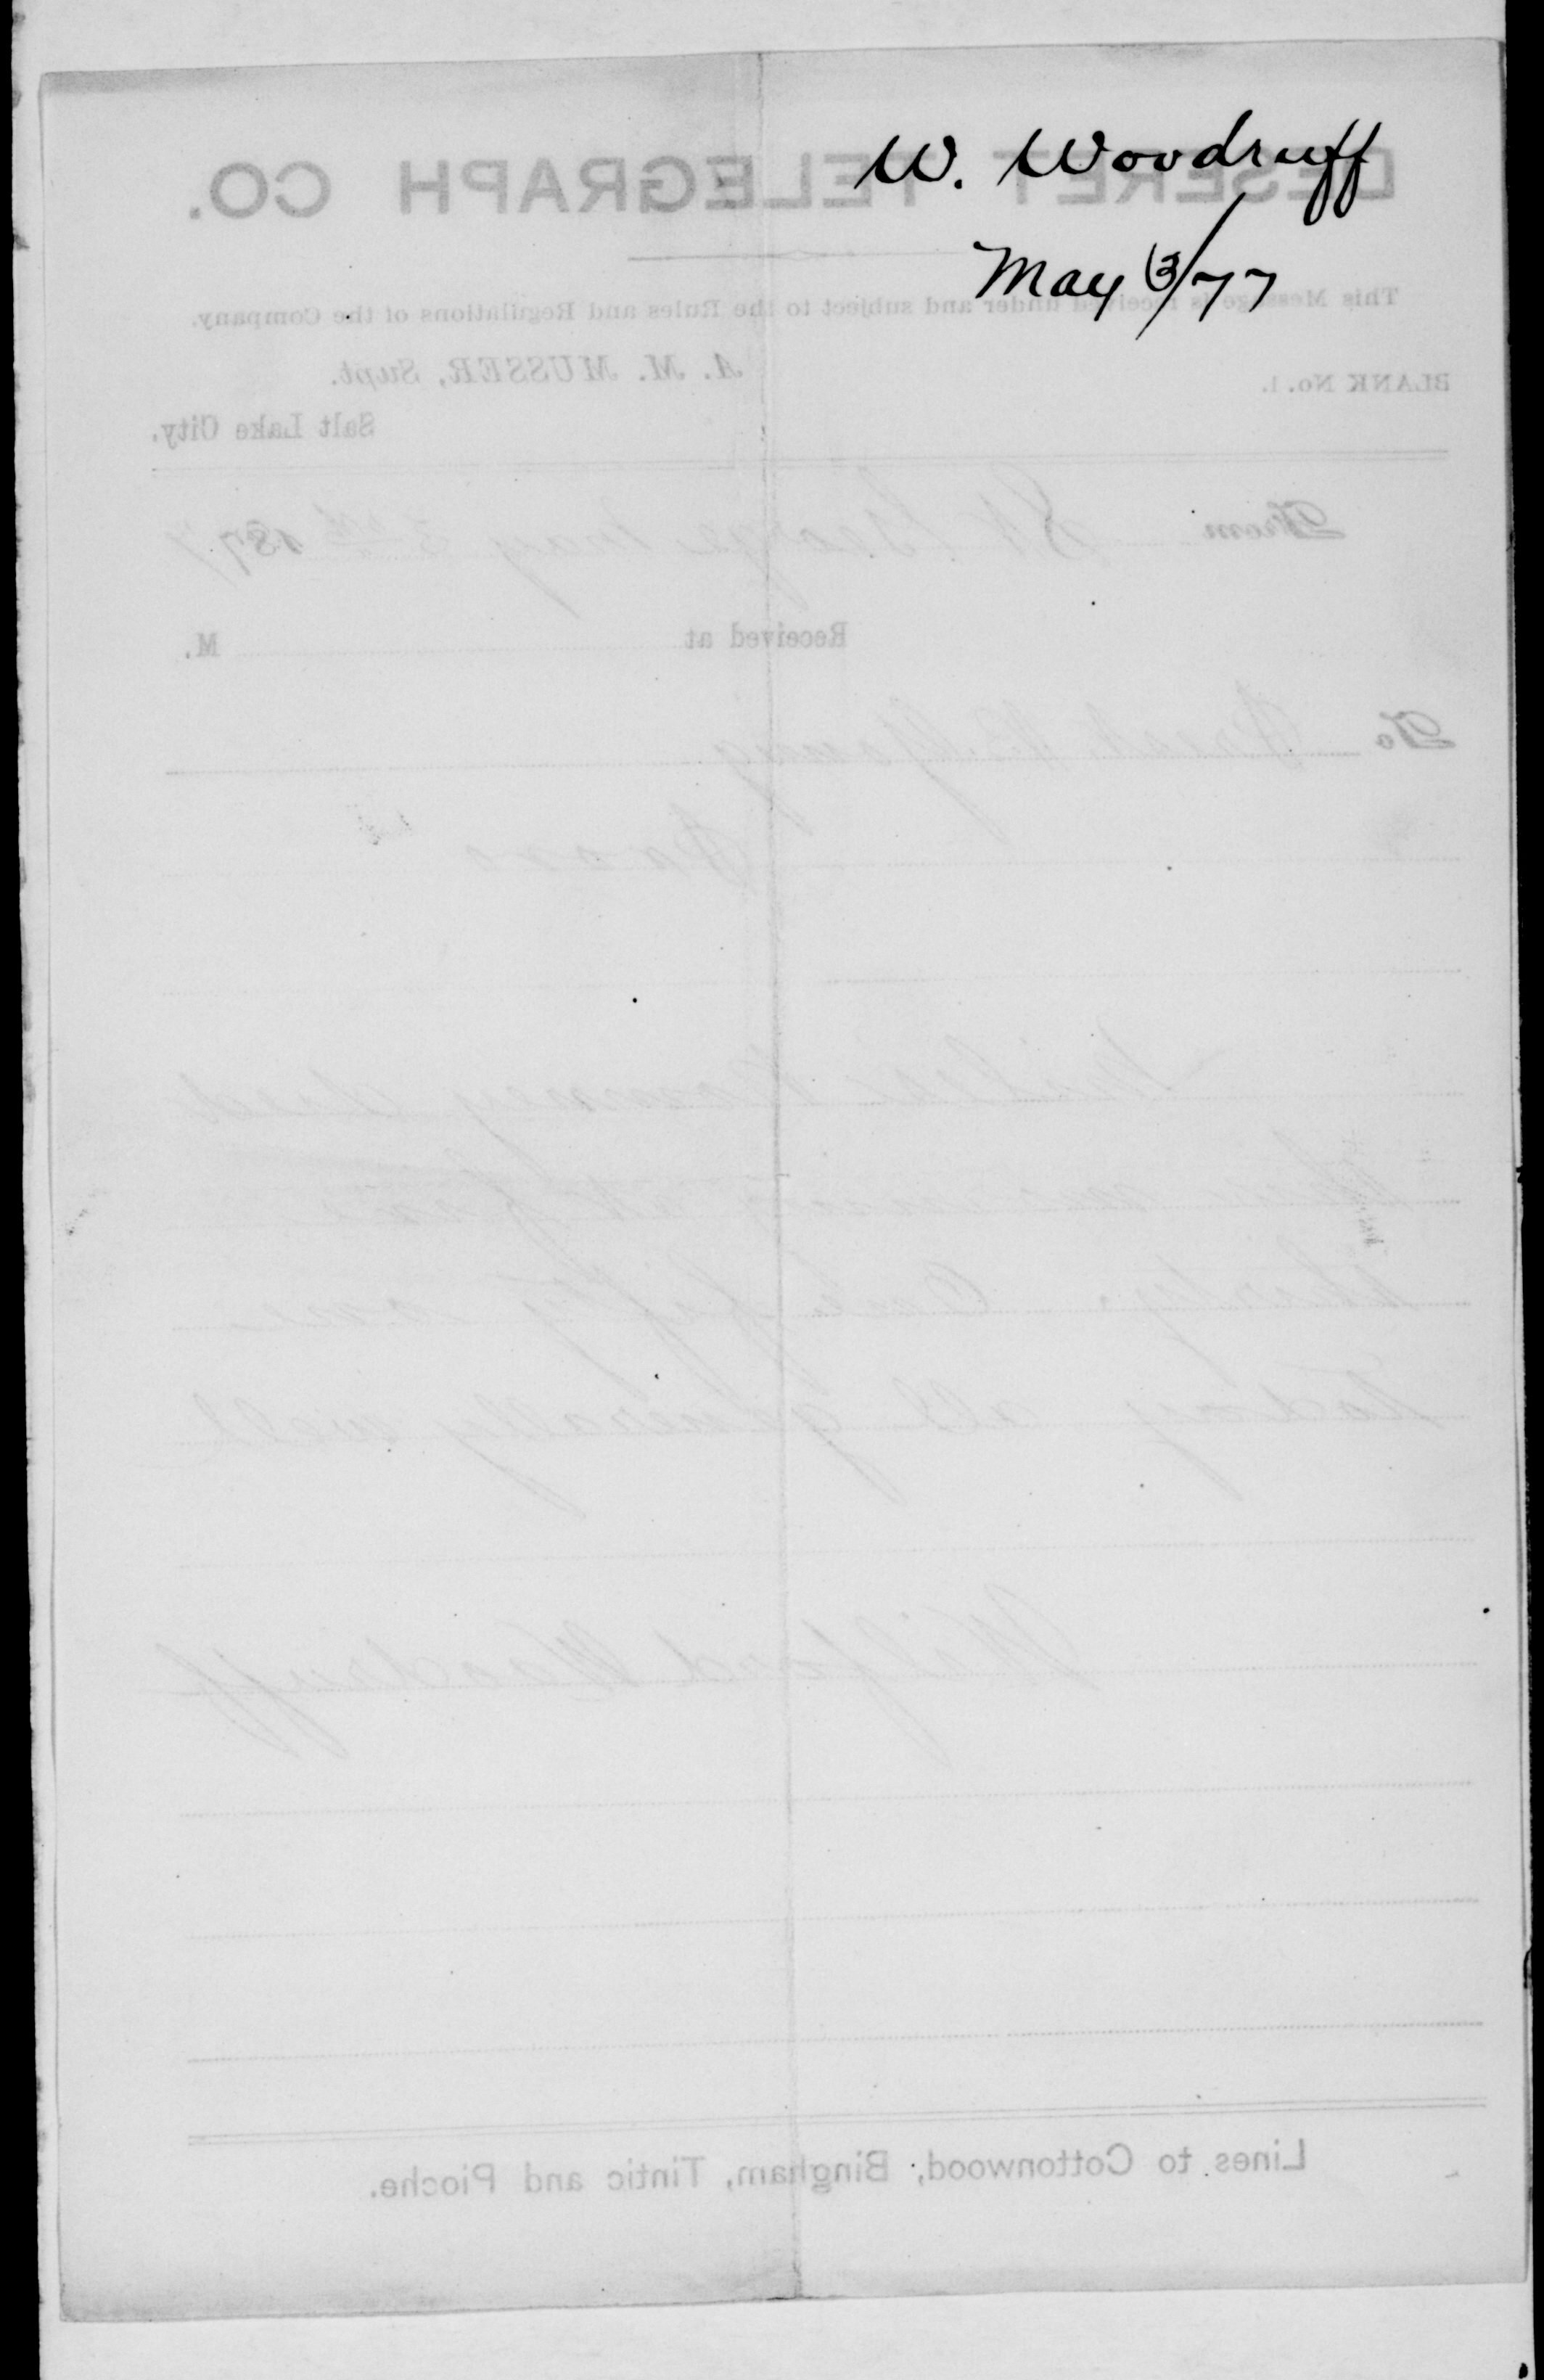 W. Woodruff
May 3/77
DESERET TELEGRAPH CO.
This Message is received under and subject to the Rules and Regulations of the Company.
BLANK No. 1. A. M. MUSSER, Supt.
Salt Lake City.
From St George May 3rd 1877
Received at M.
To Prest B. Young
died
this morning at
thirty. One fifty one
today all generally well
Wilford Woodruff
Lines to Cottonwood, Bingham, Tintic and Pioche.